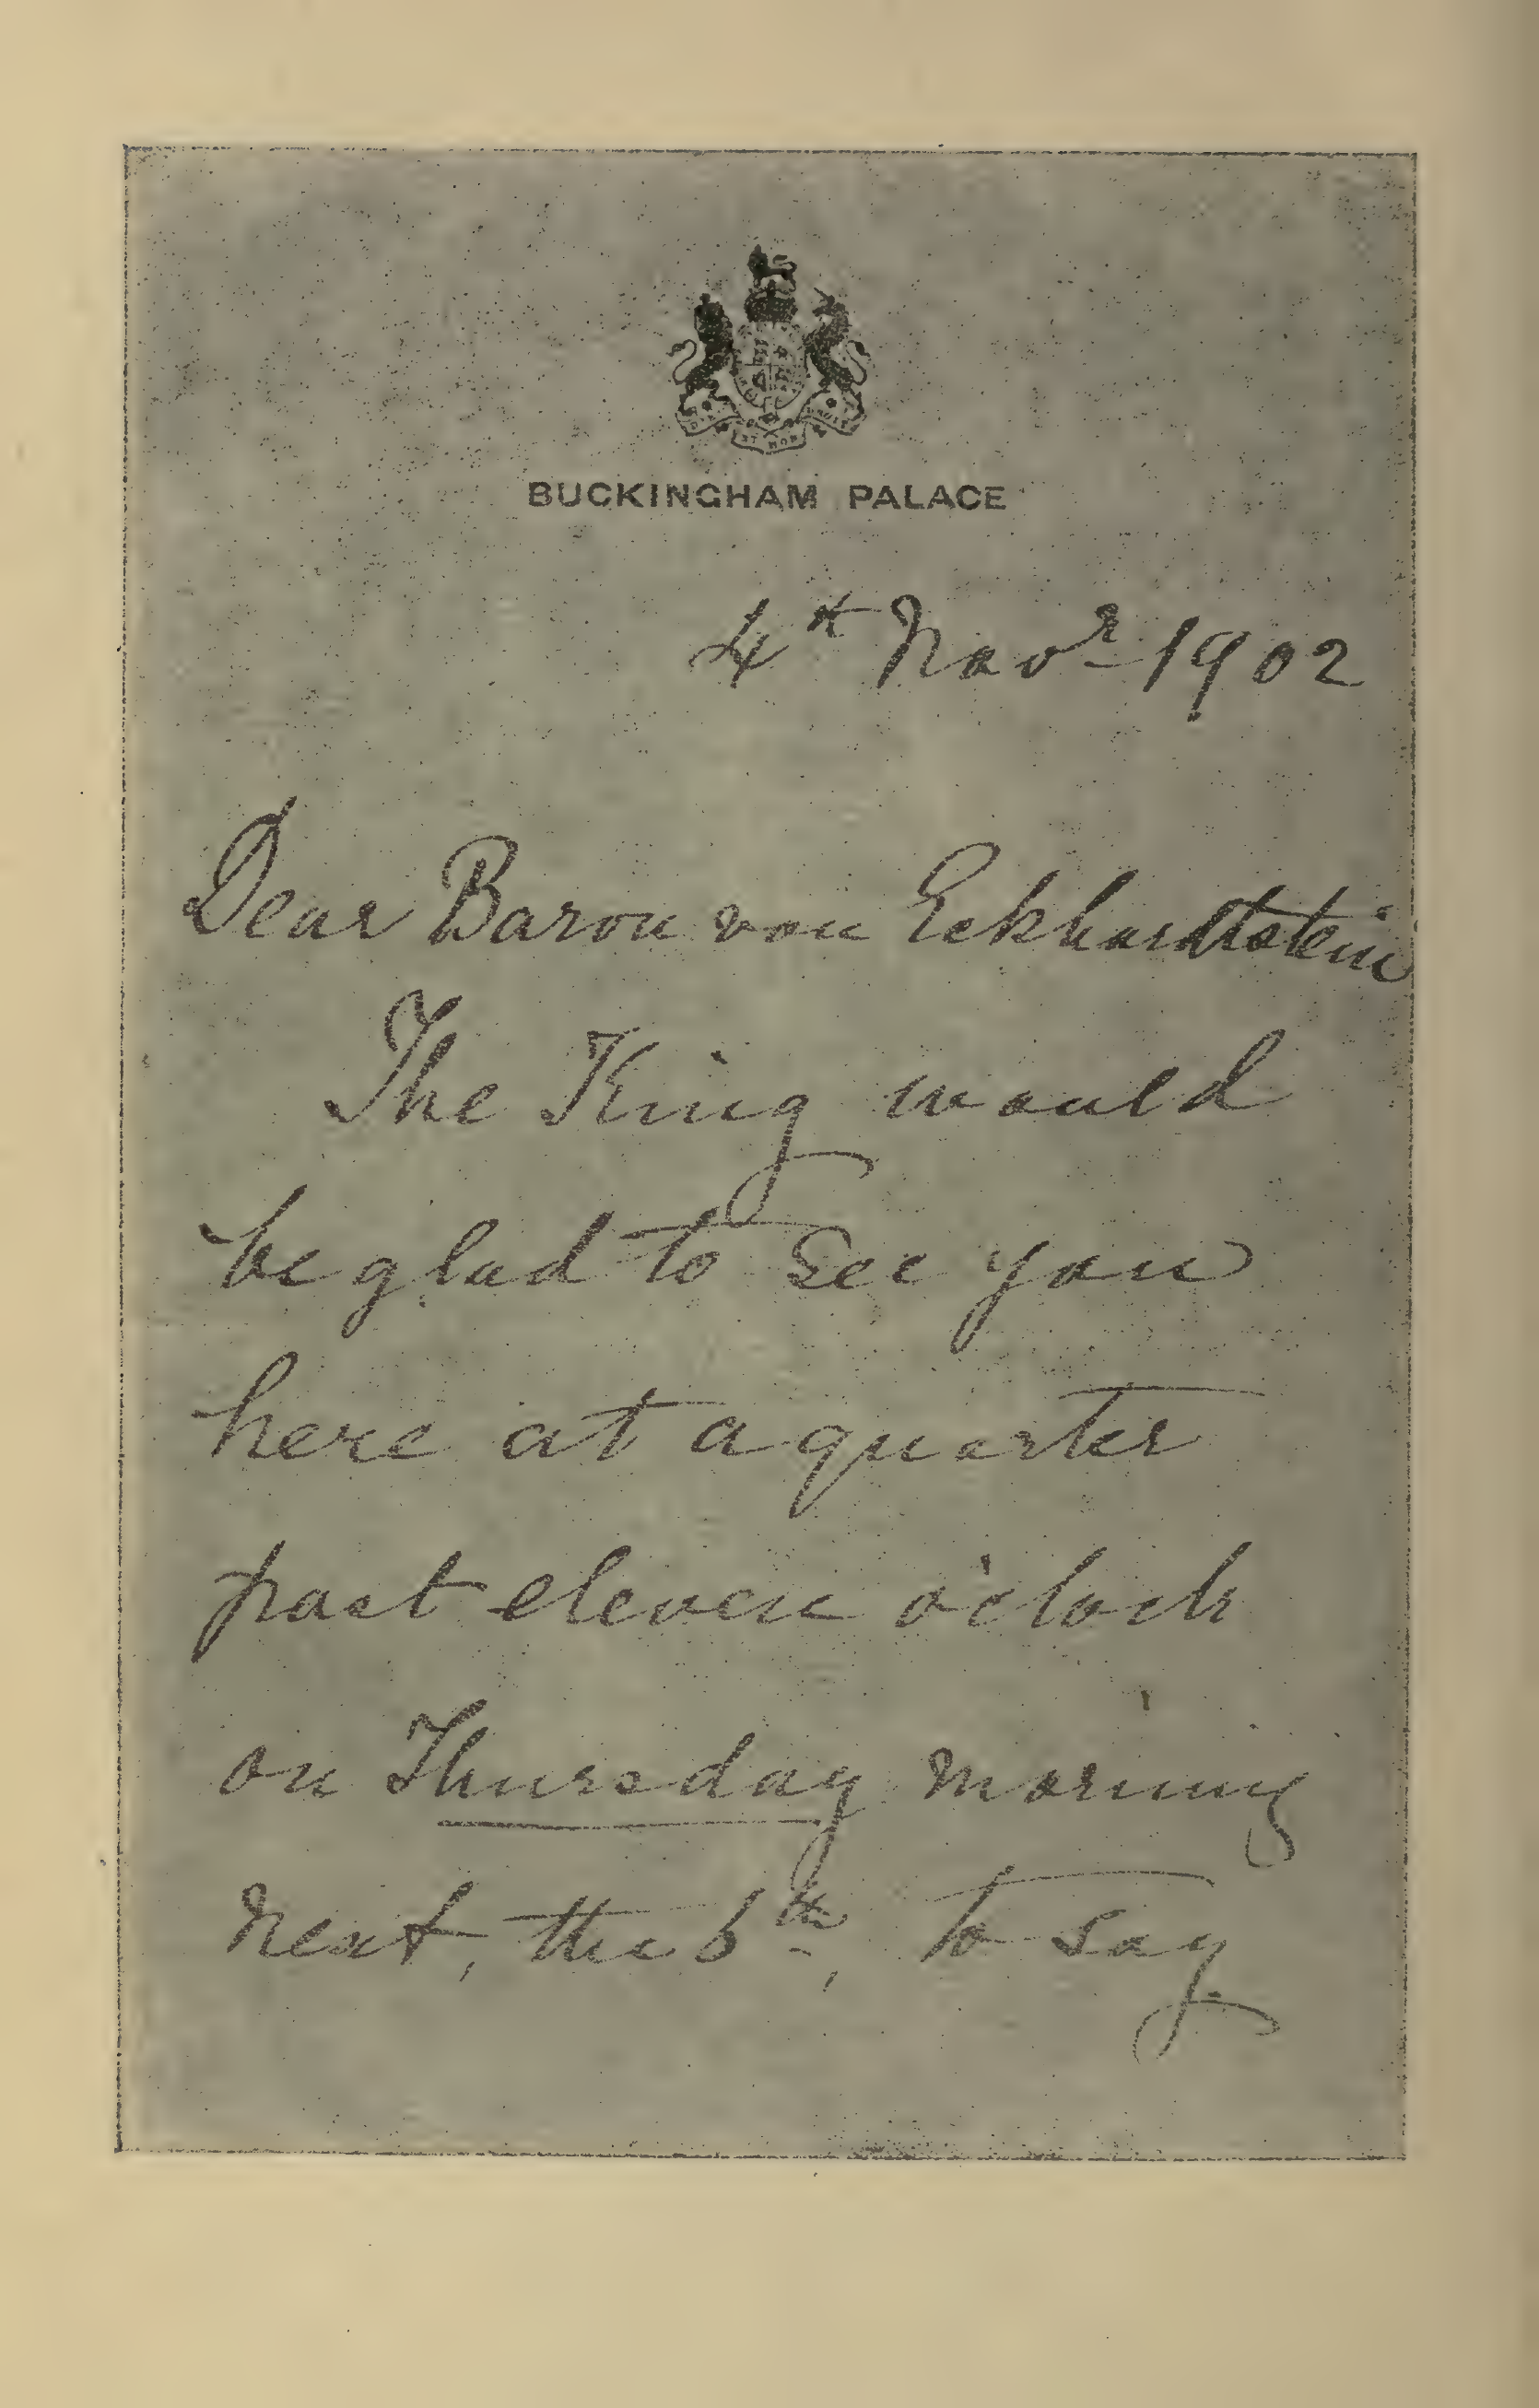 BUCKINGHAM PALACE
4th Novr 1902
Dear Baron von Eckhardtstein
The King would
be glad to see you
here at a quarter
past eleven o'clock
on Thursday morning
next, the 6th, to say